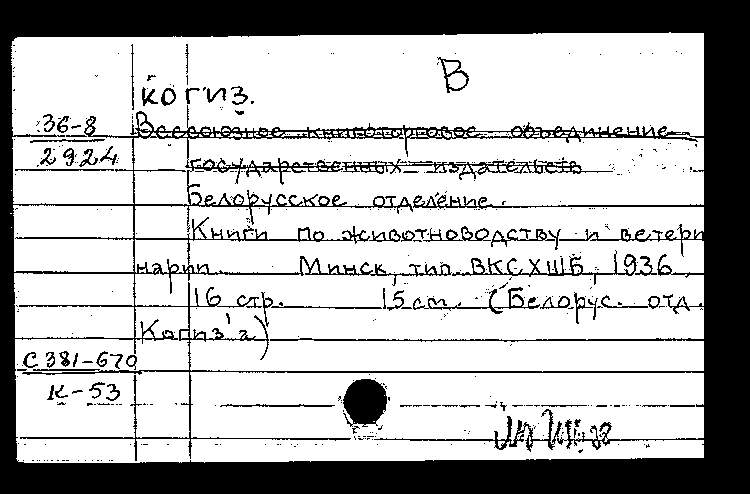 В
КОГИЗ.
36-8
2924
Всесоюзное книготорговое объединение
государственных издательств
Белорусское отделение.
Книги по животноводству и ветери
нарии. Минск, тип. ВКСХШБ, 1936.
16 стр. 15 cm. (Белорус. отд.
Когиз'а)
С 381-670
К-53